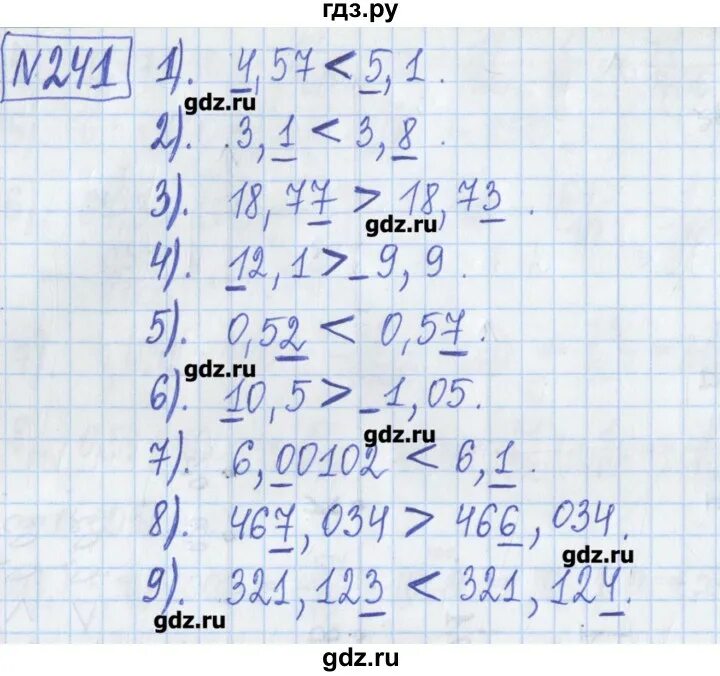 гдз.ру
№241 1). 4,57 < 5,1.
gdz.ru
2). 3,1 < 3,8.
3). 18,77 > 18,73.
gdz.ru
4). 12,1 > _9,9.
5). 0,52 < 0,57.
gdz.ru
6). 10,5 > _1,05.
gdz.ru
7). 6,00102 < 6,1.
8). 467,034 > 466,034.
gdz.ru
9). 321,123 < 321,124.
gdz.ru
gdz.ru